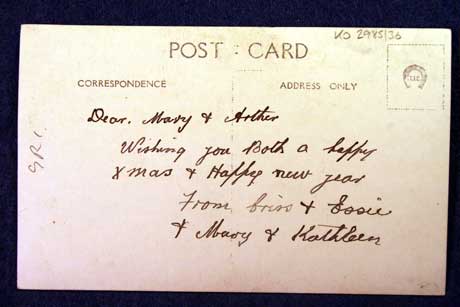 KO 2985/36
POST CARD
CORRESPONDENCE
ADDRESS ONLY
Dear. Mary & Arther
Wishing you Both a happy
Xmas & Happy new year
From Criss & Essie
& Mary & Kathleen